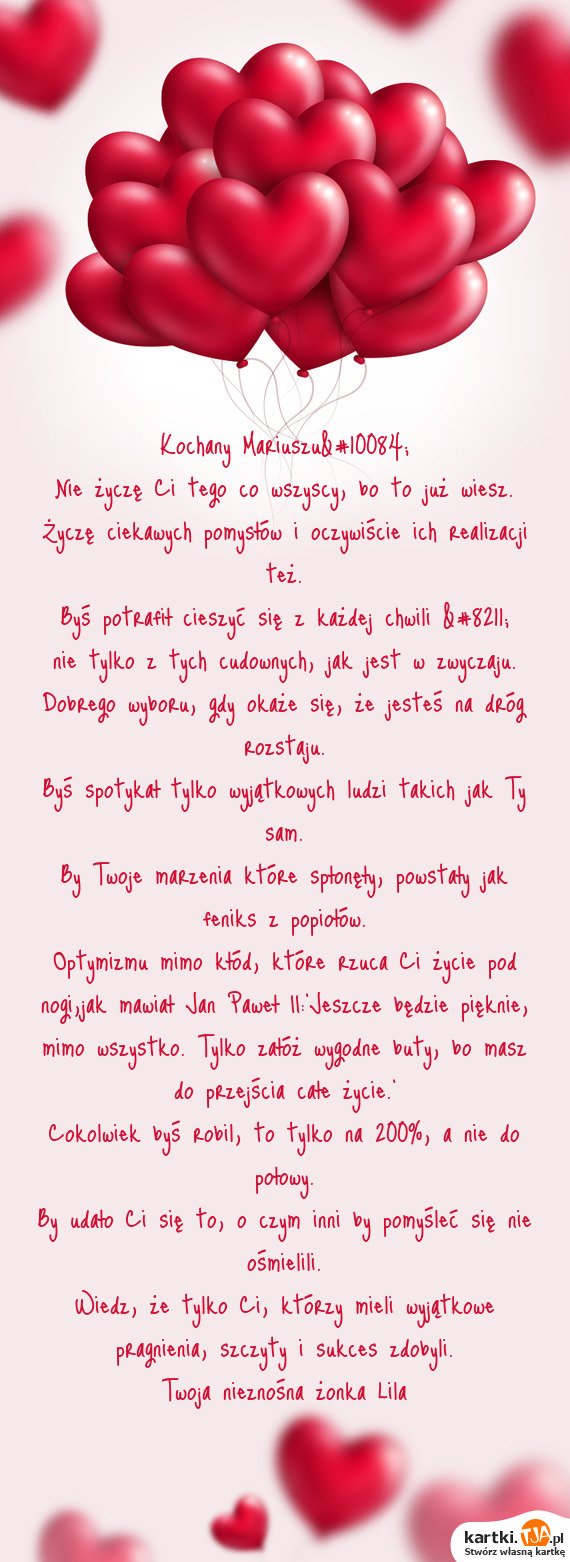 Kochany Mariuszu&#10084;
Nie życzę Ci tego co wszyscy, bo to już wiesz.
Życzę ciekawych pomysłów i oczywiście ich realizacji
też.
Byś potrafił cieszyć się z każdej chwili &#8211;
nie tylko z tych cudownych, jak jest w zwyczaju.
Dobrego wyboru, gdy okaże się, że jesteś na dróg
rozstaju.
Byś spotykał tylko wyjątkowych ludzi takich jak Ty
sam.
By Twoje marzenia które spłonęły, powstały jak
feniks z popiołów.
Optymizmu mimo kłód, które rzuca Ci życie pod
nogi,jak mawiał Jan Paweł II:"Jeszcze będzie pięknie,
mimo wszystko. Tylko załóż wygodne buty, bo masz
do przejścia całe życie."
Cokolwiek byś robił, to tylko na 200%, a nie do
połowy.
By udało Ci się to, o czym inni by pomyśleć się nie
ośmielili.
Wiedz, że tylko Ci, którzy mieli wyjątkowe
pragnienia, szczyty i sukces zdobyli.
Twoja nieznośna żonka Lila
kartki.TJA.pl
Stwórz własną kartkę